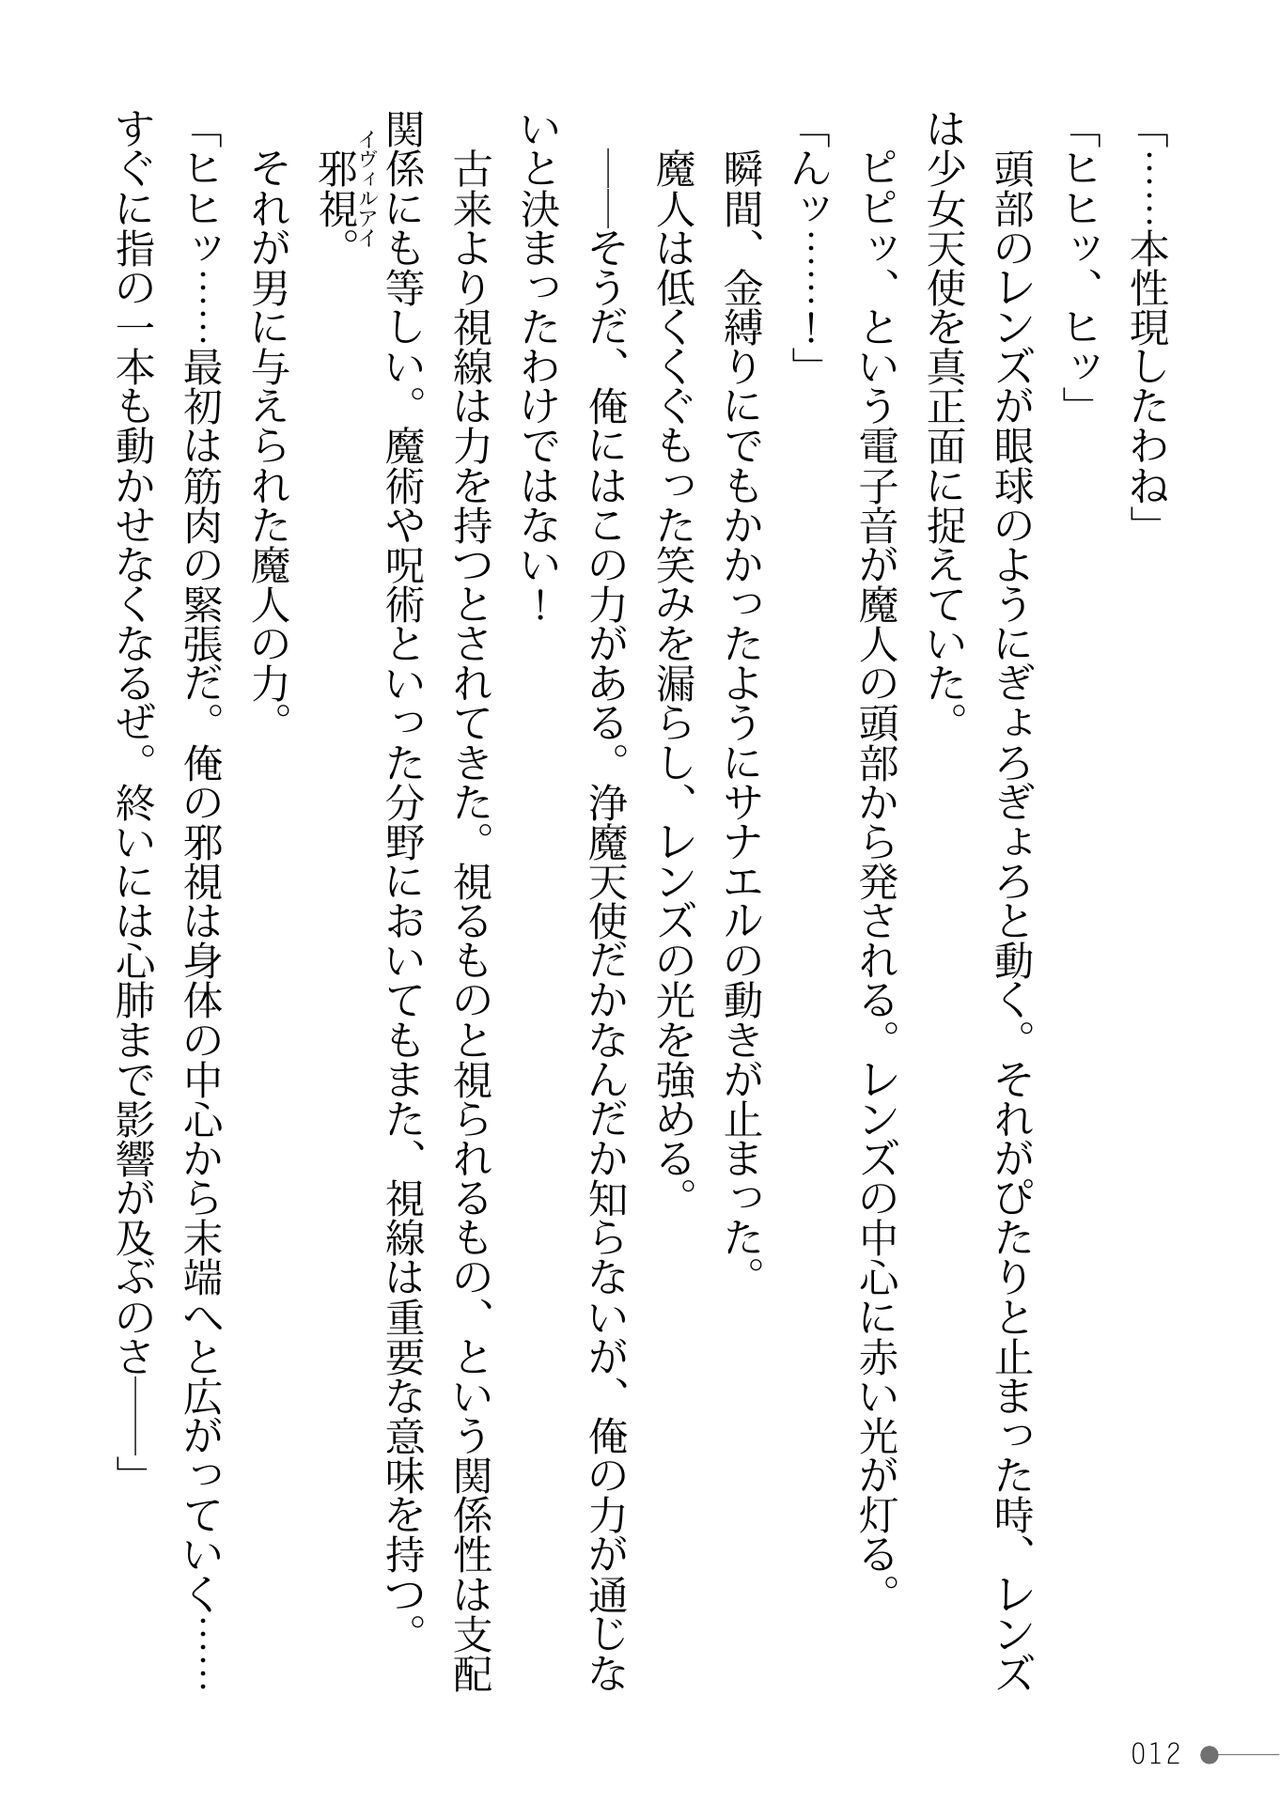 「……本性現したわね」
「ヒヒッ、ヒッ」
　頭部のレンズが眼球のようにぎょろぎょろと動く。それがぴたりと止まった時、レンズ
は少女天使を真正面に捉えていた。
　ピピッ、という電子音が魔人の頭部から発される。レンズの中心に赤い光が灯る。
「んッ……！」
　瞬間、金縛りにでもかかったようにサナエルの動きが止まった。
　魔人は低くくぐもった笑みを漏らし、レンズの光を強める。
　――そうだ、俺にはこの力がある。浄魔天使だかなんだか知らないが、俺の力が通じな
いと決まったわけではない！
　古来より視線は力を持つとされてきた。視るものと視られるもの、という関係性は支配
関係にも等しい。魔術や呪術といった分野においてもまた、視線は重要な意味を持つ。
イヴィルアイ
　邪視。
　それが男に与えられた魔人の力。
「ヒヒッ……最初は筋肉の緊張だ。俺の邪視は身体の中心から末端へと広がっていく……
すぐに指の一本も動かせなくなるぜ。終いには心肺まで影響が及ぶのさ――」
012